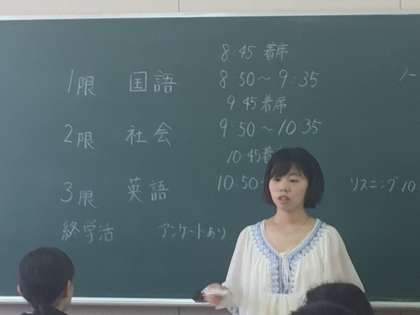 8:45 着席
1限 国語 8:50～9:35
9:45 着席
2限 社会 9:50～10:35
10:45 着
3限 英語 10:50 リスニング10
終学活 アンケートあり